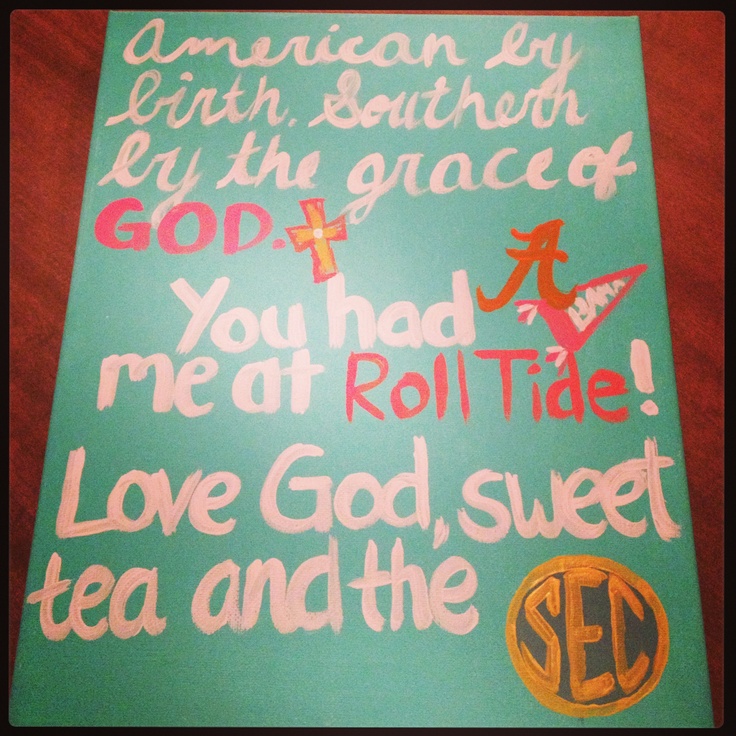 American by
birth. Southern
by the grace of
GOD.
A
BAMA
You had
me at Roll Tide!
Love God, sweet
tea and the
SEC